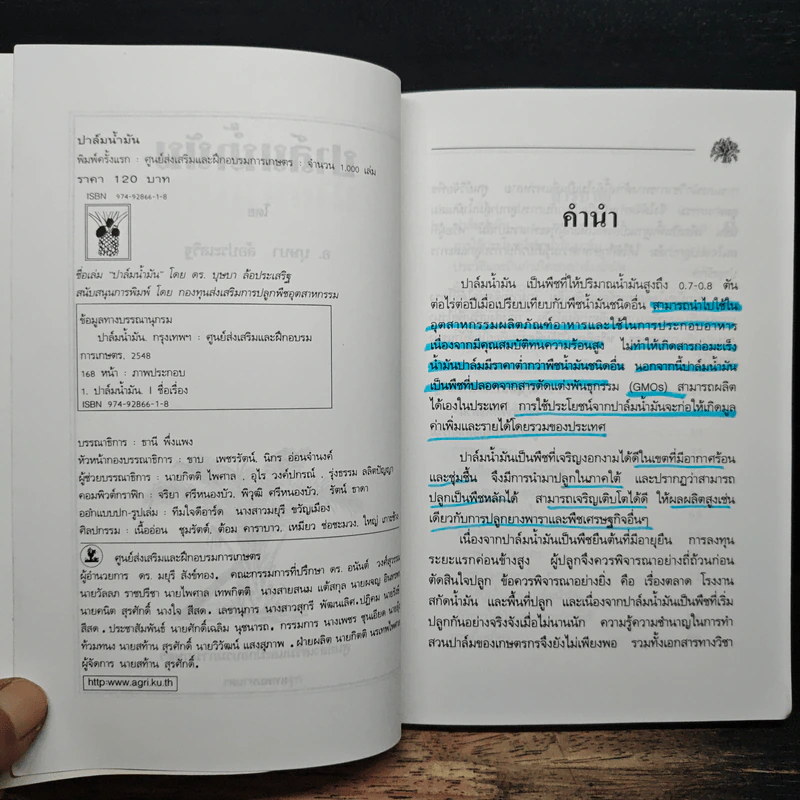 ปาล์มน้ำมัน
พิมพ์ครั้งแรก : ศูนย์ส่งเสริมและฝึกอบรมการเกษตร : จำนวน 1,000 เล่ม
ราคา 120 บาท
ISBN 974-92866-1-8
ชื่อเล่ม "ปาล์มน้ำมัน" โดย ดร. บุษบา ล้อประเสริฐ
สนับสนุนการพิมพ์ โดย กองทุนส่งเสริมการปลูกพืชอุตสาหกรรม
ข้อมูลทางบรรณานุกรม
ปาล์มน้ำมัน. กรุงเทพฯ : ศูนย์ส่งเสริมและฝึกอบรม
การเกษตร. 2548
168 หน้า : ภาพประกอบ
1. ปาล์มน้ำมัน. I ชื่อเรื่อง
ISBN 974-92866-1-8
บรรณาธิการ : ธานี พึ่งแพง
หัวหน้ากองบรรณาธิการ : ขาบ เพชรรัตน์, นิกร อ่อนจำนงค์
ผู้ช่วยบรรณาธิการ : นายกิตติ ไพศาล , อุไร วงค์ปกรณ์ , รุ่งธรรม ลลิตปัญญา
คอมพิวต์กราฟิก : จริยา ศรีหนองบัว, พิวุฒิ ศรีหนองบัว, รัตน์ ธาดา
ออกแบบปก-รูปเล่ม : ทีมใจดีอาร์ต นางสาวมยุรี ขวัญเมือง
ศิลปกรรม : เนื้ออ่อน ชุมรัตต์, ต้อม คาราบาว, เหมียว ช่อชะมวง, ใหญ่ เกาะช้าง
ศูนย์ส่งเสริมและฝึกอบรมการเกษตร
ผู้อำนวยการ ดร. มยุรี สังข์ทอง, คณะกรรมการที่ปรึกษา ดร. อนันต์
นายวัลลภ ราชปรีชา นายไพศาล เทพกิตติ นางสายสนม แต้สกุล นายผจญ
นายคนิต สุรศักดิ์ นางใจ สีสด , เลขานุการ นางสาวสุกรี พัฒนเลิศ, ปฏิคม
สีสด , ประชาสัมพันธ์ นายศักดิ์เฉลิม นุชนารถ, กรรมการ นางเพชร ขุนเอียด
ท้วมทนง นายสท้าน สุรศักดิ์ นายวิวัฒน์ แสงสุภาพ , ฝ่ายผลิต นายกิตติ
ผู้จัดการ นายสท้าน สุรศักดิ์.
http:www.agri.ku.th
คำนำ
ปาล์มน้ำมัน เป็นพืชที่ให้ปริมาณน้ำมันสูงถึง 0.7-0.8 ตัน
ต่อไร่ต่อปีเมื่อเปรียบเทียบกับพืชน้ำมันชนิดอื่น สามารถนำไปใช้ใน
อุตสาหกรรมผลิตภัณฑ์อาหารและใช้ในการประกอบอาหาร
เนื่องจากมีคุณสมบัติทนความร้อนสูง ไม่ทำให้เกิดสารก่อมะเร็ง
น้ำมันปาล์มมีราคาต่ำกว่าพืชน้ำมันชนิดอื่น นอกจากนี้ปาล์มน้ำมัน
เป็นพืชที่ปลอดจากสารตัดแต่งพันธุกรรม (GMOs) สามารถผลิต
ได้เองในประเทศ การใช้ประโยชน์จากปาล์มน้ำมันจะก่อให้เกิดมูล
ค่าเพิ่มและรายได้โดยรวมของประเทศ
ปาล์มน้ำมันเป็นพืชที่เจริญงอกงามได้ดีในเขตที่มีอากาศร้อน
และชุ่มชื้น จึงมีการนำมาปลูกในภาคใต้ และปรากฏว่าสามารถ
ปลูกเป็นพืชหลักได้ สามารถเจริญเติบโตได้ดี ให้ผลผลิตสูงเช่น
เดียวกับการปลูกยางพาราและพืชเศรษฐกิจอื่นๆ
เนื่องจากปาล์มน้ำมันเป็นพืชยืนต้นที่มีอายุยืน การลงทุน
ระยะแรกค่อนข้างสูง ผู้ปลูกจึงควรพิจารณาอย่างถี่ถ้วนก่อน
ตัดสินใจปลูก ข้อควรพิจารณาอย่างยิ่ง คือ เรื่องตลาด โรงงาน
สกัดน้ำมัน และพื้นที่ปลูก และเนื่องจากปาล์มน้ำมันเป็นพืชที่เริ่ม
ปลูกกันอย่างจริงจังเมื่อไม่นานนัก ความรู้ความชำนาญในการทำ
สวนปาล์มของเกษตรกรจึงยังไม่เพียงพอ รวมทั้งเอกสารทางวิชา